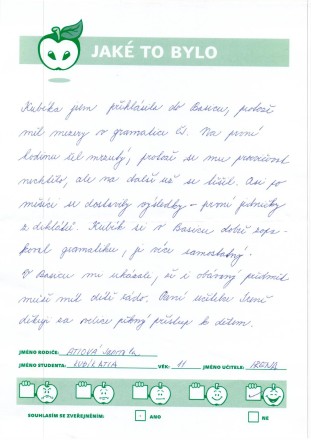 JAKÉ TO BYLO
Kubíka jsem přihlásila do Basicu, protože
měl mezery v gramatice ČJ. Na první
hodinu šel mrzutý, protože se mu pracovat
nechtělo, ale na další už se těšil. Asi po
měsíci se dostavily výsledky - první jedničky
z diktátů. Kubík se v Basicu dobře zopa-
koval gramatiku, je více samostatný.
V Basicu mi ukázali, že i obávaný předmět
může mít dítě rádo. Paní učitelce Ireně
děkuji za velice pěkný přístup k dětem.
JMÉNO RODIČE:
JMÉNO STUDENTA: KUBÍK VĚK: 11 JMÉNO UČITELE: IRENA
SOUHLASÍM SE ZVEŘEJNĚNÍM: ANO NE